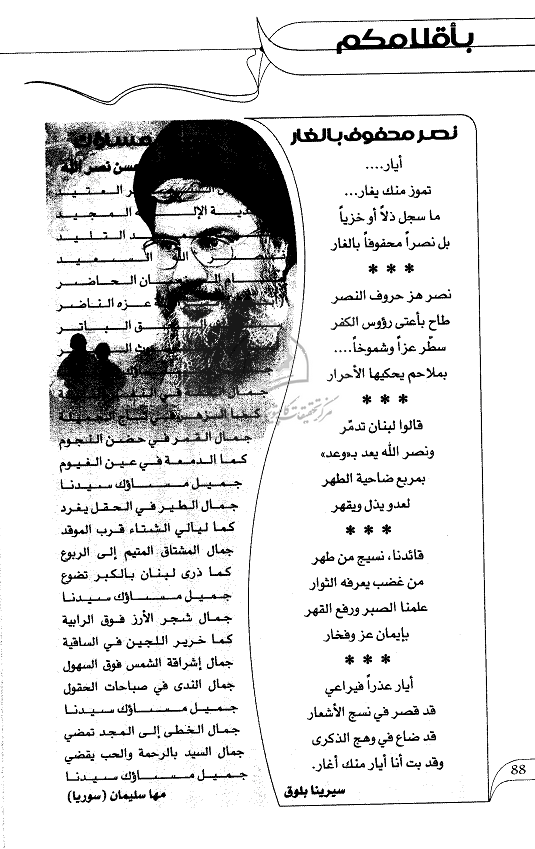 بأقلامكم
نصر محفوف بالغار
أيار....
تموز منك يغار...
ما سجل ذلاً أو خزياً
بل نصراً محفوفاً بالغار
***
نصر هز حروف النصر
طاح بأعتى رؤوس الكفر
سطّر عزاً وشموخاً....
بملاحم يحكيها الأحرار
***
قالوا لبنان تدمّر
ونصر الله يعد بـ«وعد»
بمربع ضاحية الطهر
لعدو يذل ويقهر
***
قائدنا، نسيج من طهر
من غضب يعرفه الثوار
علمنا الصبر ورفع القهر
بإيمان عز وفخار
***
أيار عذراً فيراعي
قد قصر في نسج الأشعار
قد ضاع في وهج الذكرى
وقد بت أنا أيار منك أغار.
سيرينا بلوق
مساؤك
حسن نصر الله
العتيد
المجيد
التليد
السعيد
الحاضر
عزه الناضر
الباتر
جمال
كما
جمال القمر في حضن النجوم
كما الدمعة في عين الغيوم
جميل مساؤك سيدنا
جمال الطير في الحقل يغرد
كما ليالي الشتاء قرب الموقد
جمال المشتاق المتيم إلى الربوع
كما ذرى لبنان بالكبر تضوع
جميل مساؤك سيدنا
جمال شجر الأرز فوق الرابية
كما خرير اللجين في الساقية
جمال إشراقة الشمس فوق السهول
جمال الندى في صباحات الحقول
جميل مساؤك سيدنا
جمال الخطى إلى المجد تمضي
جمال السيد بالرحمة والحب يقضي
جميل مساؤك سيدنا
مها سليمان (سوريا)
88